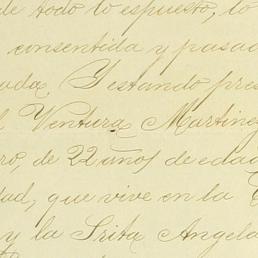 de todo lo espuesto, lo
consentida y pasad
uada. Y estando pres
l Ventura Martinez
ro, de 22 años de edad
dad, que vive en la C
y la Srita Angela